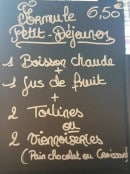 Formule 6,50€
Petit-Déjeuner
1 Boisson chaude
+
1 Jus de fruit
+
2 Tartines
ou
2 Viennoiseries
(Pain chocolat ou Croissant)